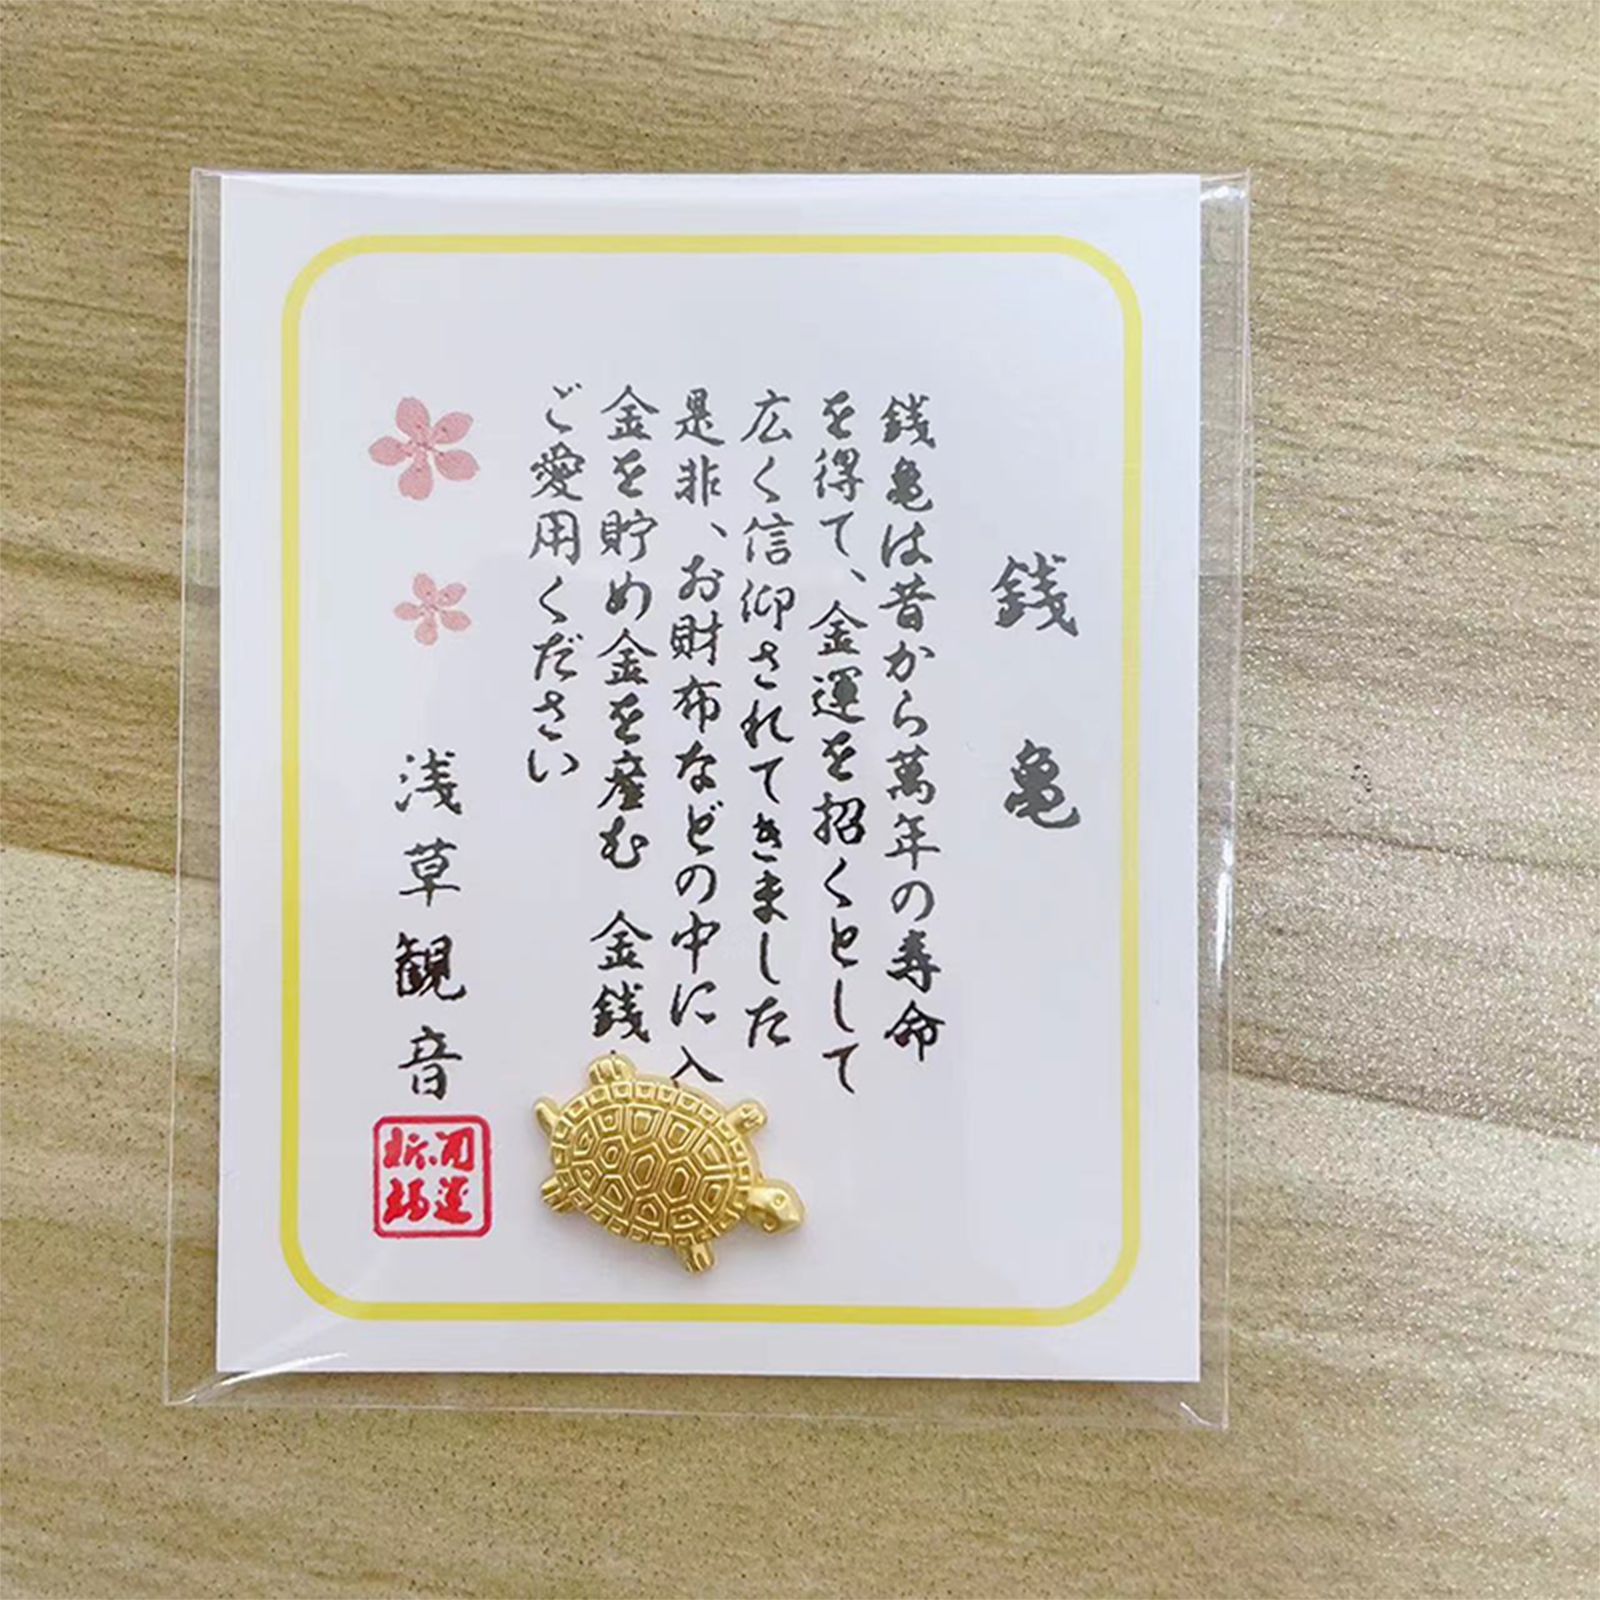 銭亀
銭亀は昔から萬年の寿命
を得て、金運を招くとして
広く信仰されてきました
是非、お財布などの中に入
金を貯め金を産む 金銭
ご愛用ください
浅草観音
開運
祈福